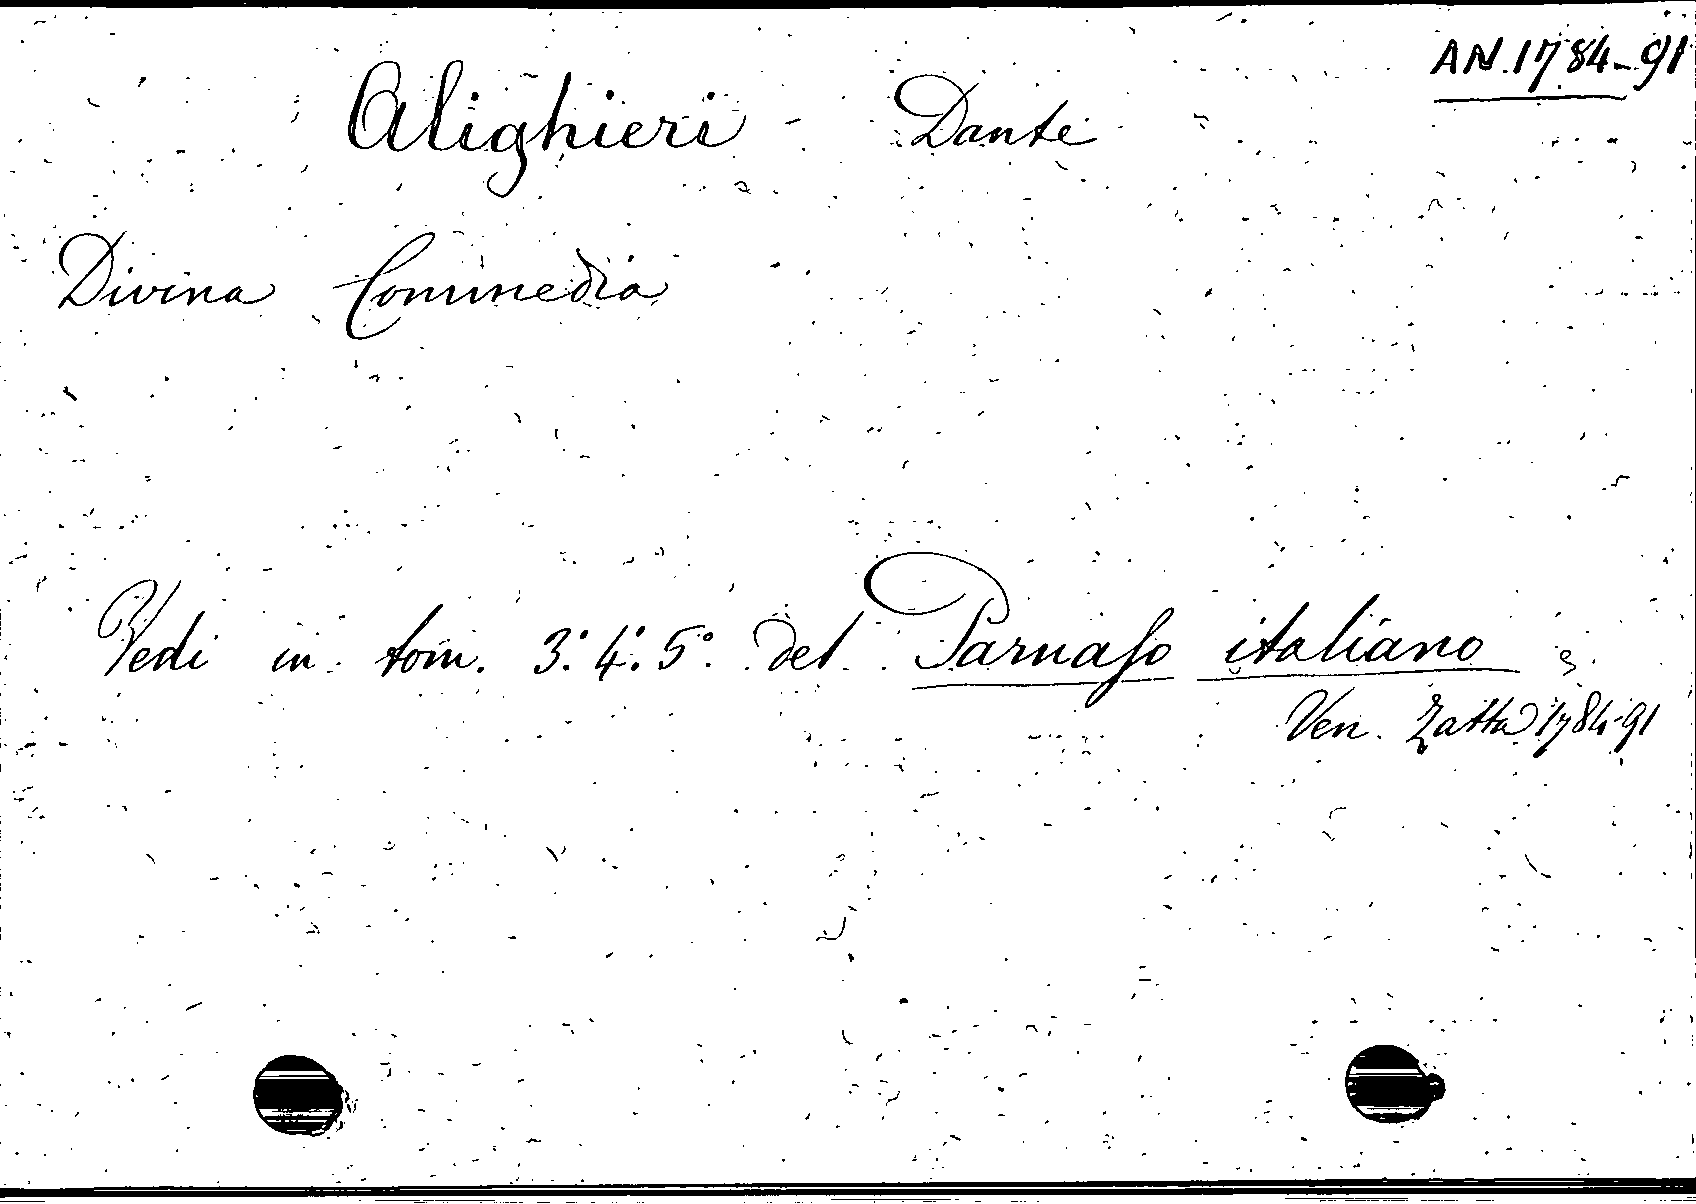 AN.1784-91
Alighieri - Dante
Divina Commedia
Vedi in tom. 3.° 4.° 5.° del Parnaſo italiano
Ven. Zatta 1784-91